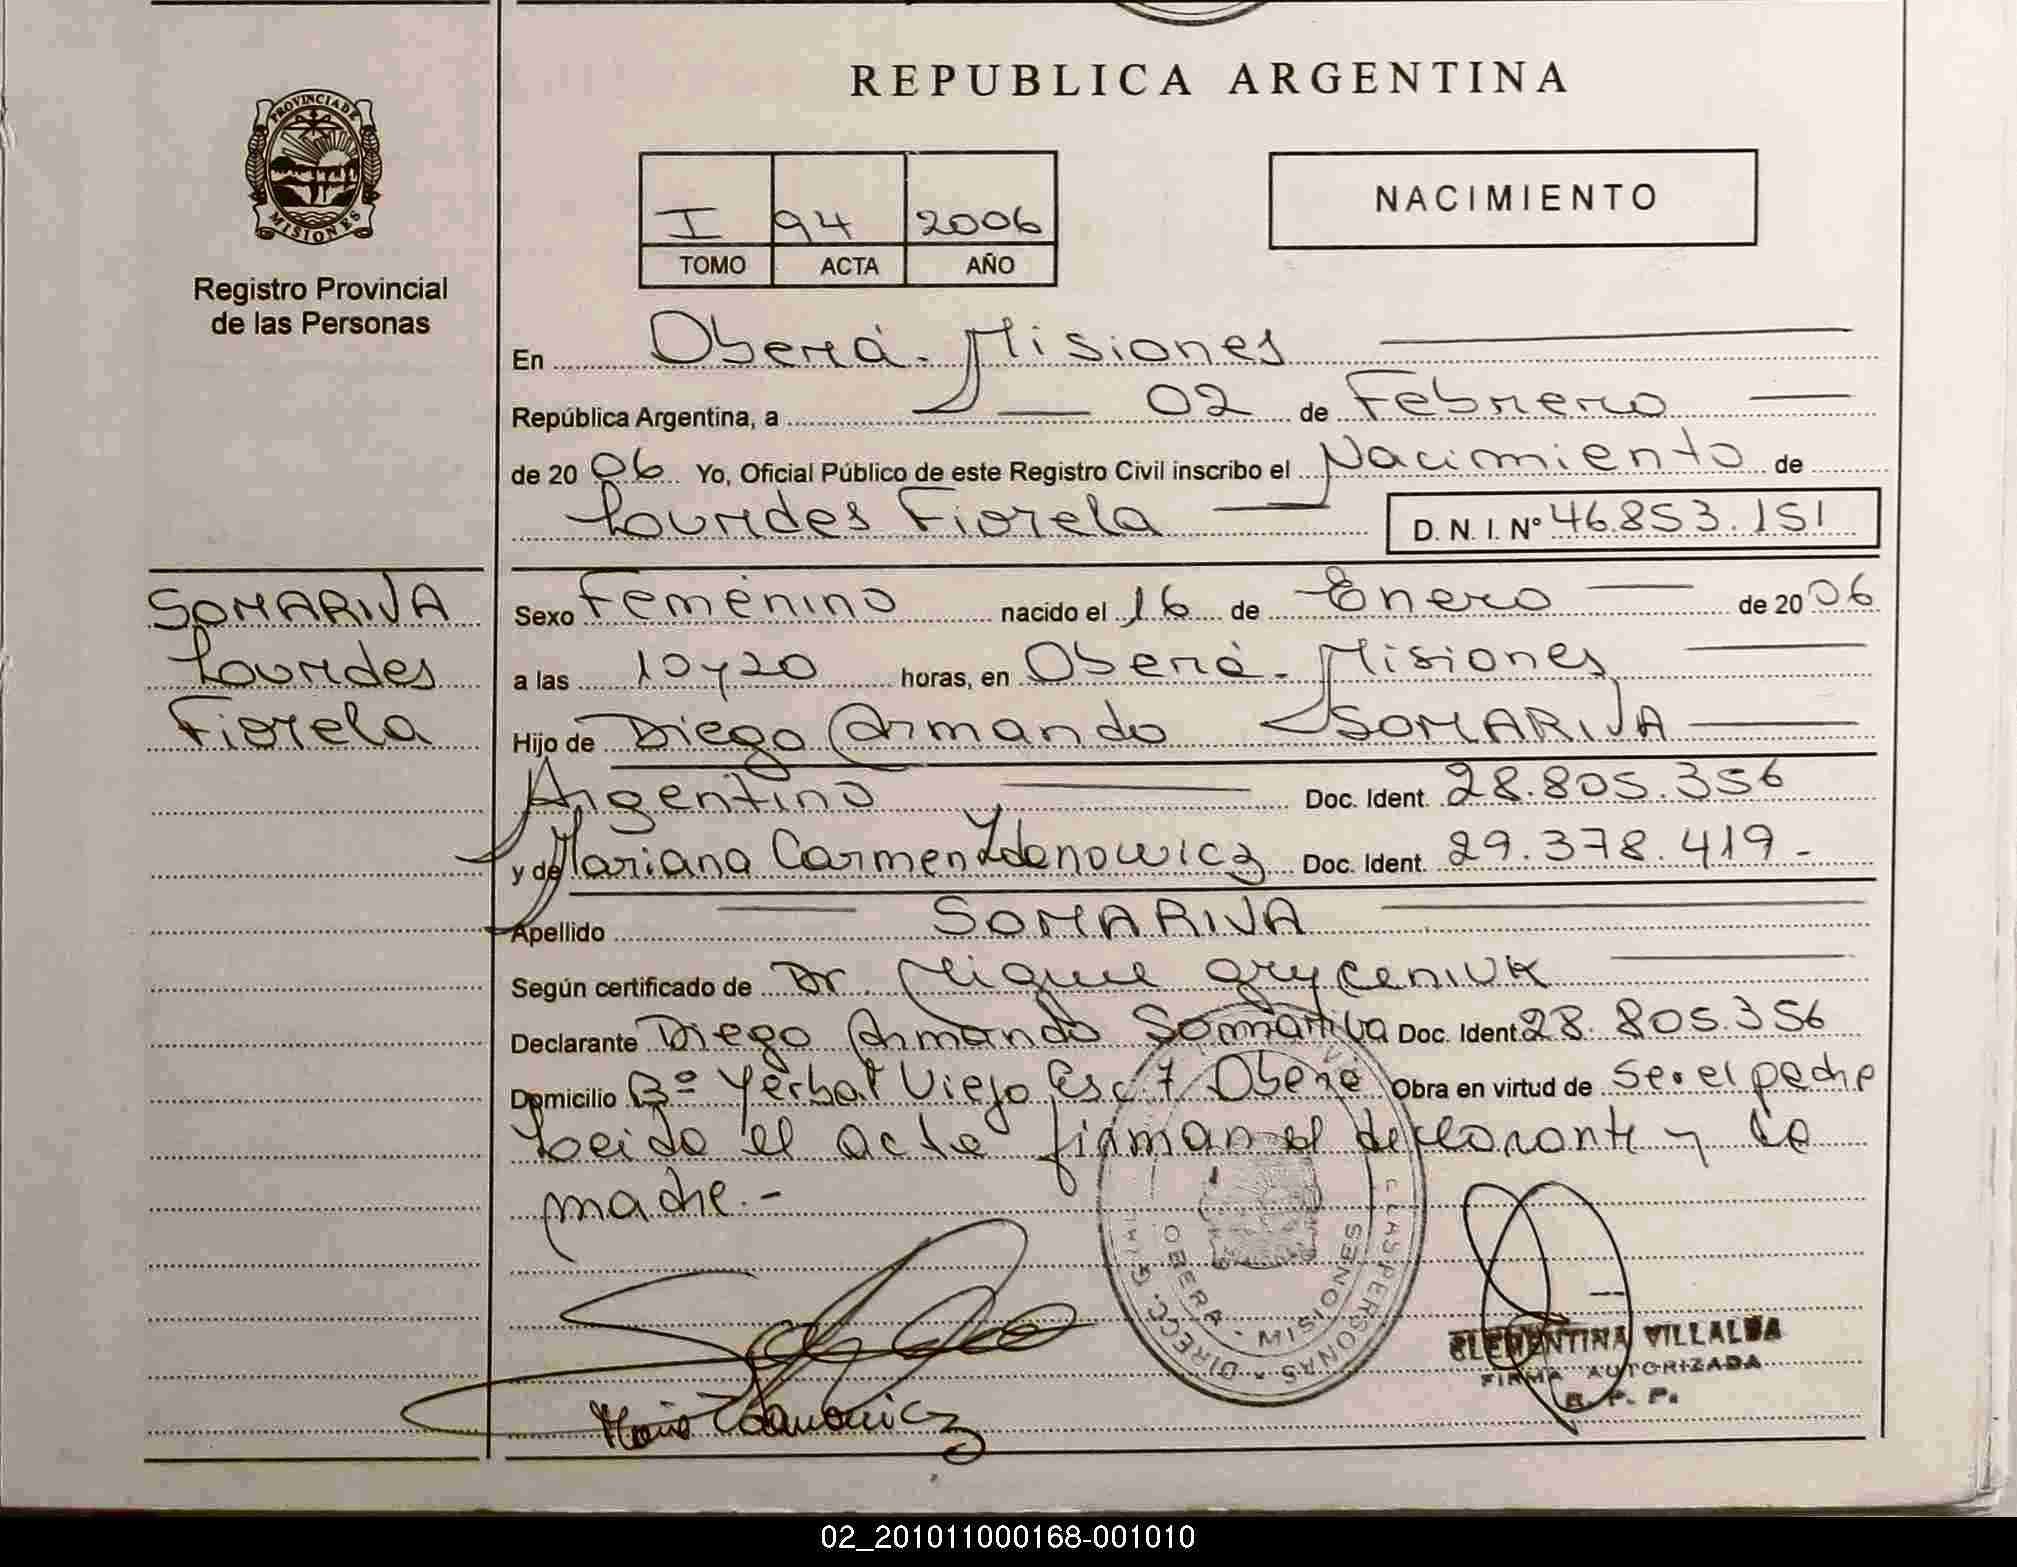 REPUBLICA ARGENTINA
PROVINCIA DE
MISIONES
Registro Provincial
de las Personas
I 94 2006
TOMO ACTA AÑO
NACIMIENTO
En Oberá - Misiones
República Argentina, a 02 de Febrero
de 20 06 Yo, Oficial Público de este Registro Civil inscribo el Nacimiento de
Lourdes Fiorela D. N. I. Nº 46.853.151
SOMARIVA
Lourdes
Fiorela
Sexo Femenino nacido el 16 de Enero de 20 06
a las 10 y 20 horas, en Oberá - Misiones
Hijo de Diego Armando SOMARIVA
Argentino Doc. Ident. 28.805.356
y de Mariana Carmen Zdanowicz Doc. Ident. 29.378.419 -
Apellido SOMARIVA
Según certificado de Dr. Miguel Gryceniuk
Declarante Diego Armando Somariva Doc. Ident. 28.805.356
Domicilio Bº Yerbal Viejo Esc. 7 Oberá Obra en virtud de ser el padre
Leida el acta firman el declarante y la
madre.-
OBERA - MISIONES
PERSONAS
Zdanowicz
CLEMENTINA VILLALBA
FIRMA AUTORIZADA
R. P. P.
02_201011000168-001010